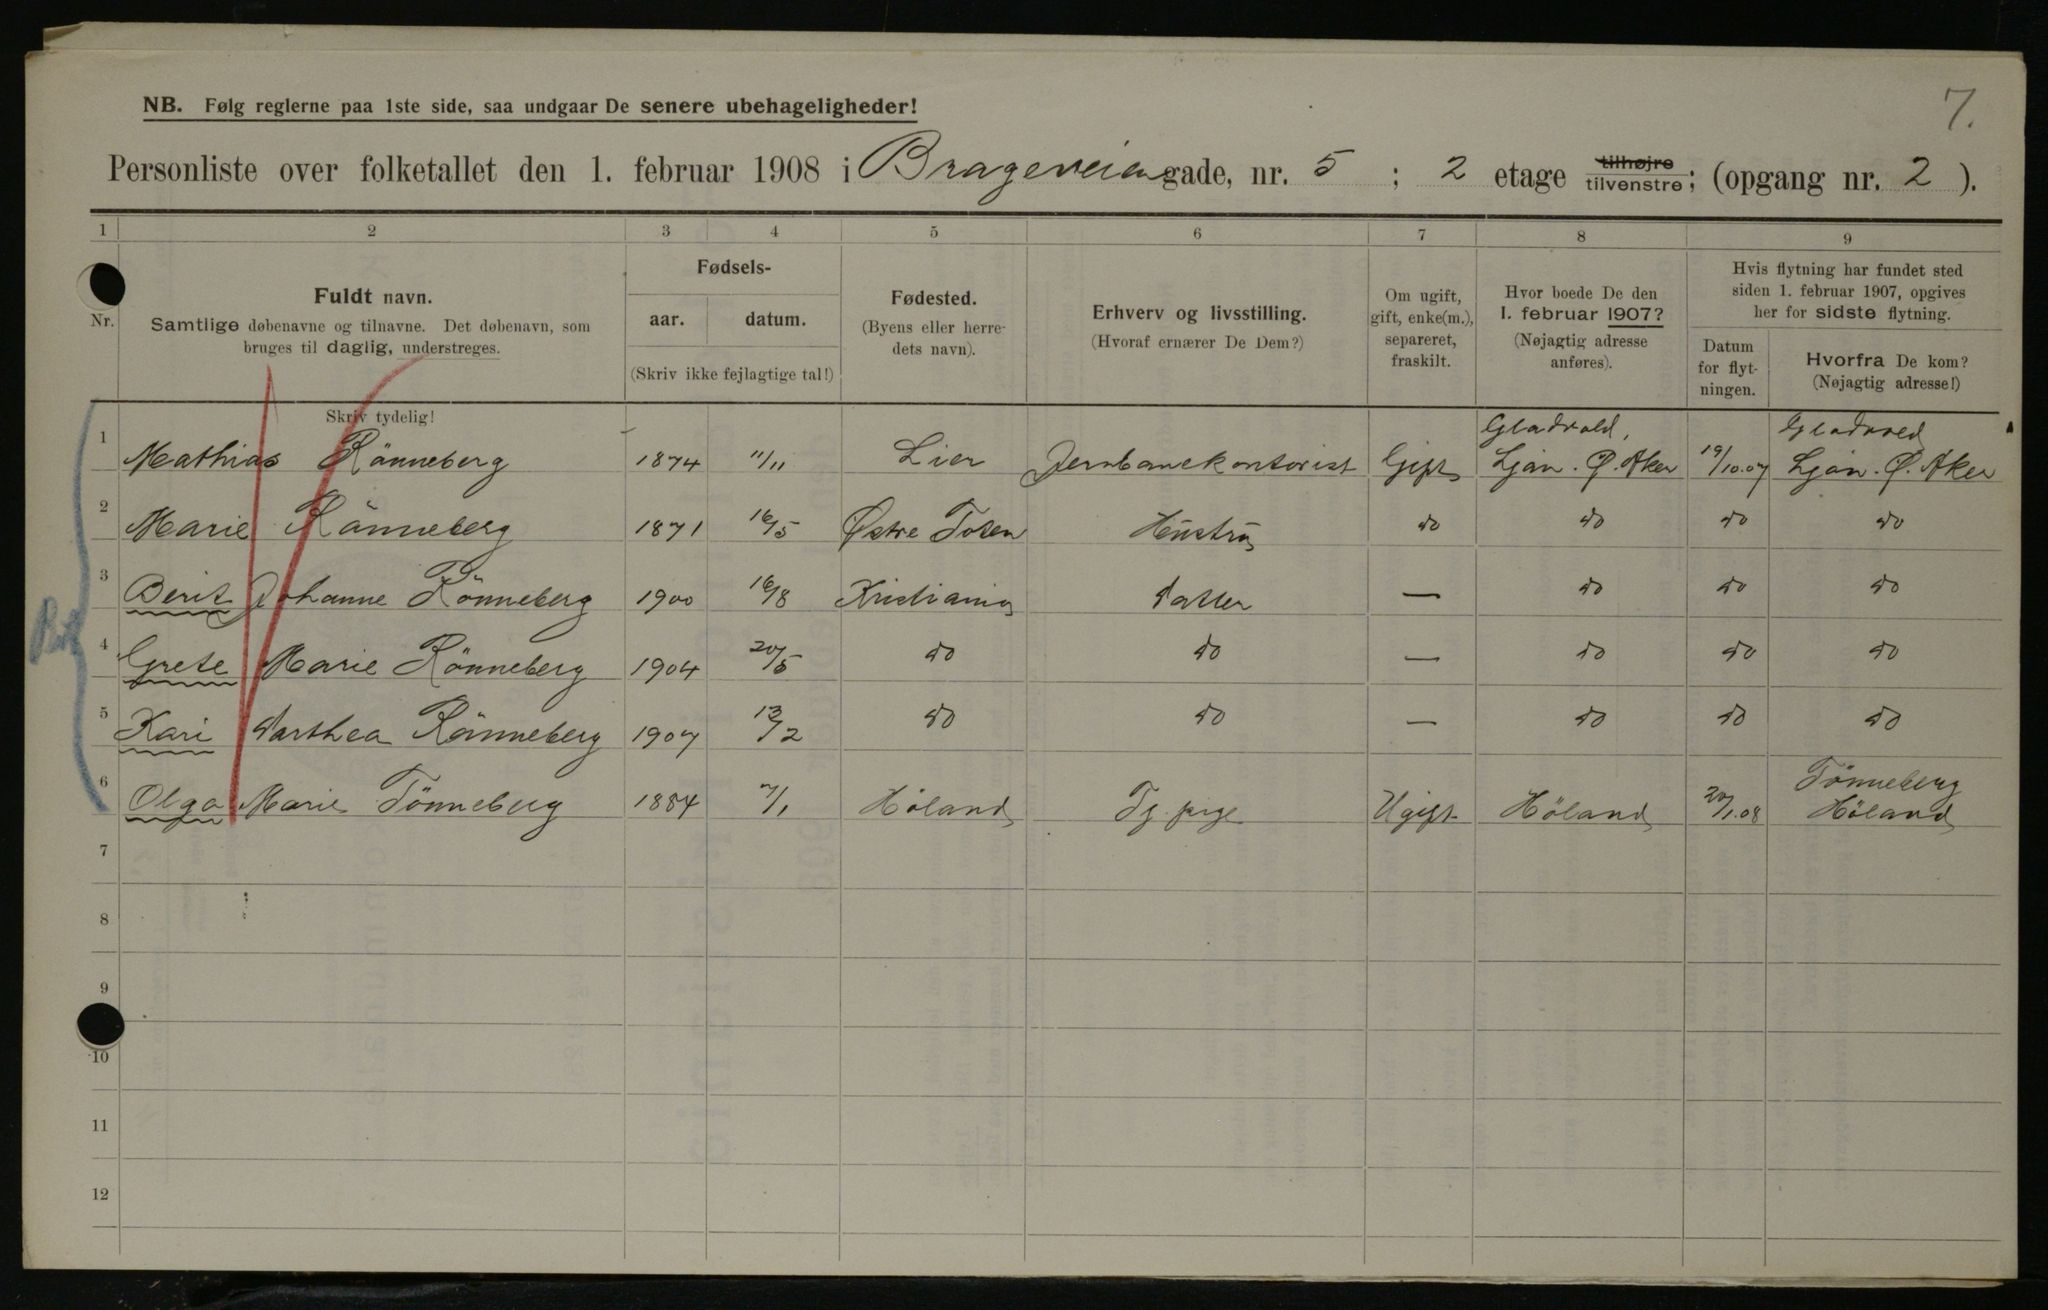 7.
NB. Følg reglerne paa 1ste side, saa undgaar De senere ubehageligheder!
Personliste over folketallet den 1. februar 1908 i Brageveien gade, nr. 5 ; 2 etage tilhøjre tilvenstre; (opgang nr. 2 ).
1 2 3 4 5 6 7 8 9
Nr.
Fuldt navn.
Samtlige døbenavne og tilnavne. Det døbenavn, som
bruges til daglig, understreges.
Fødsels-
aar. datum.
(Skriv ikke fejlagtige tal!)
Fødested.
(Byens eller herre-
dets navn).
Erhverv og livsstilling.
(Hvoraf ernærer De Dem?)
Om ugift,
gift, enke(m.),
separeret,
fraskilt.
Hvor boede De den
1. februar 1907?
(Nøjagtig adresse
anføres).
Hvis flytning har fundet sted
siden 1. februar 1907, opgives
her for sidste flytning.
Datum
for flyt-
ningen.
Hvorfra De kom?
(Nøjagtig adresse!)
Skriv tydelig!
Gladvold, Gladvold
1 Mathias Rönneberg 1874 11/11 Lier Jernbanekontorist Gift Ljan. Ø. Aker 19/10.07 Ljan. Ø. Aker
2 Marie Rönneberg 1871 16/5 Østre Toten Hustru do do do do
3 Berit Johanne Rönneberg 1900 16/8 Kristiania Datter — do do do
4 Grete Marie Rönneberg 1904 20/5 do do — do do do
5 Kari Darthea Rönneberg 1907 13/2 do do — do do do
Tönneberg
6 Olga Marie Tönneberg 1884 7/1 Höland Tj. pige Ugift Höland 20/1.08 Höland
7
8
9
10
11
12